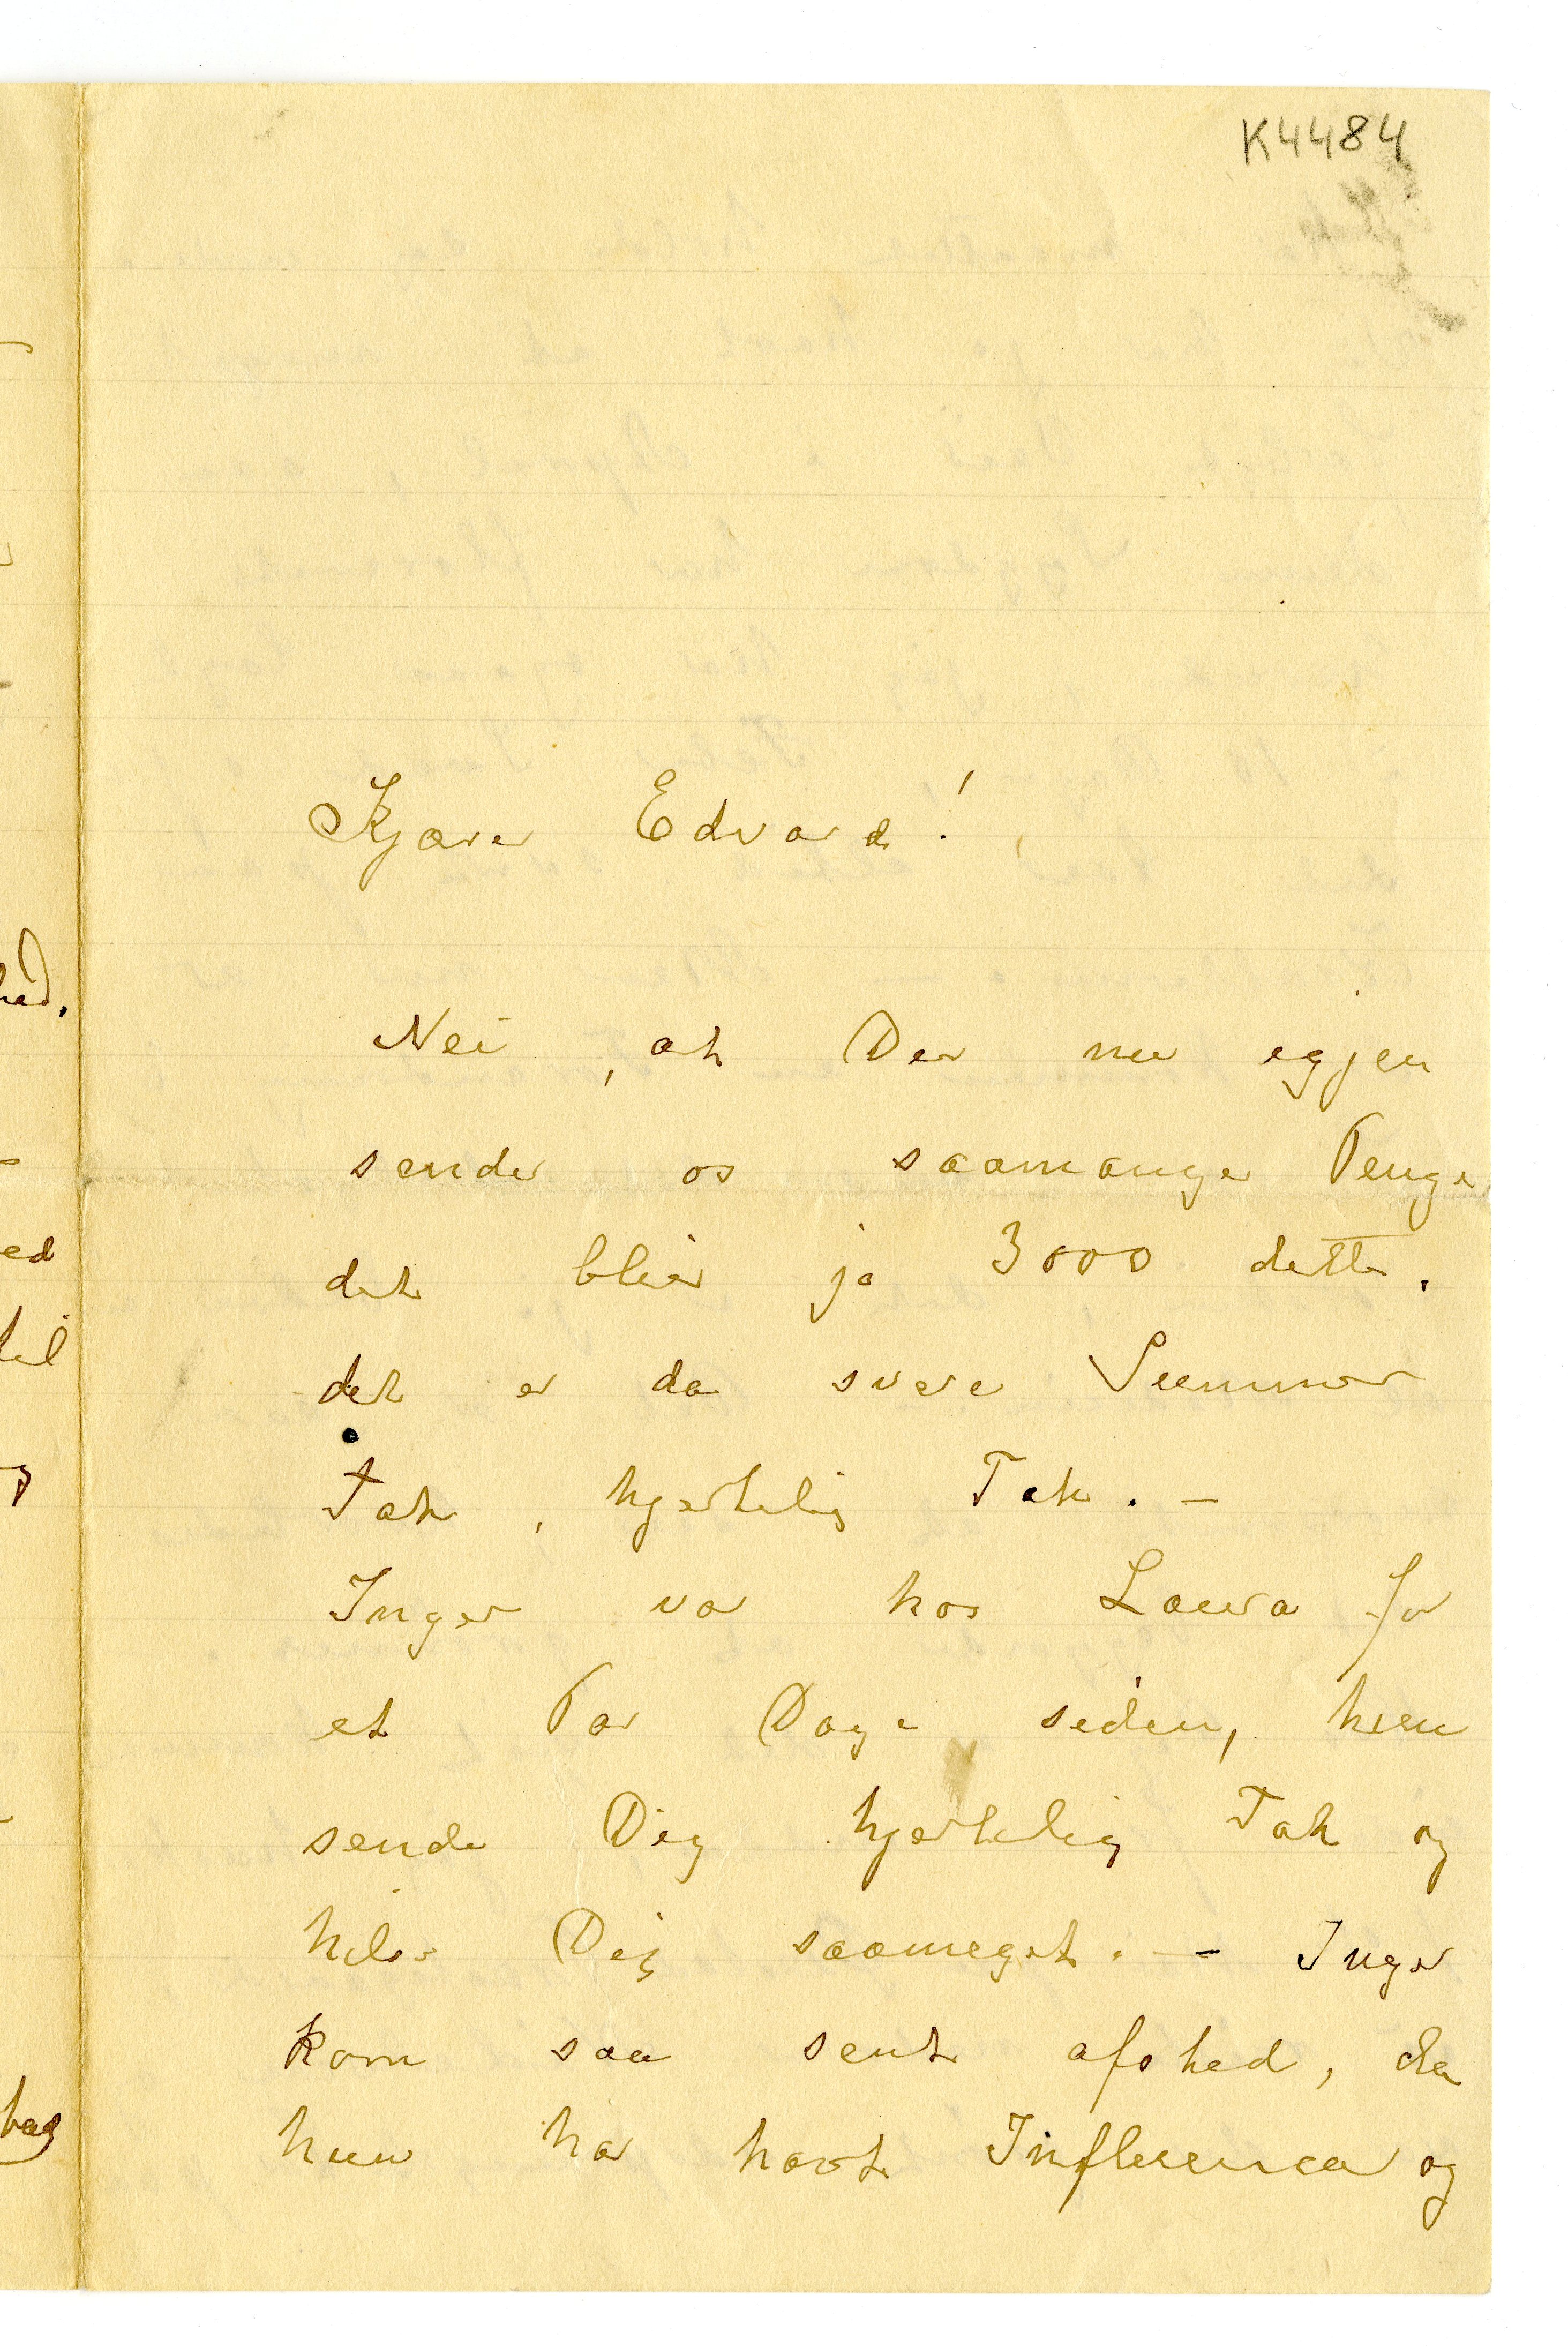 K4484
Kjære Edvard!
Nei, at Der nu egjen
sender os saamange Penge
det blir ja 3000 dette.
det er da svære Summer
Tak, hjertelig Tak. –
Inger var hos Laura for
et Par Dage siden, hun
sende Dig hjertelig Tak og
hilse Dig saameget. – Inger
kom saa sent afsted, da
hun har havt Influenca og
hed.
ed
til